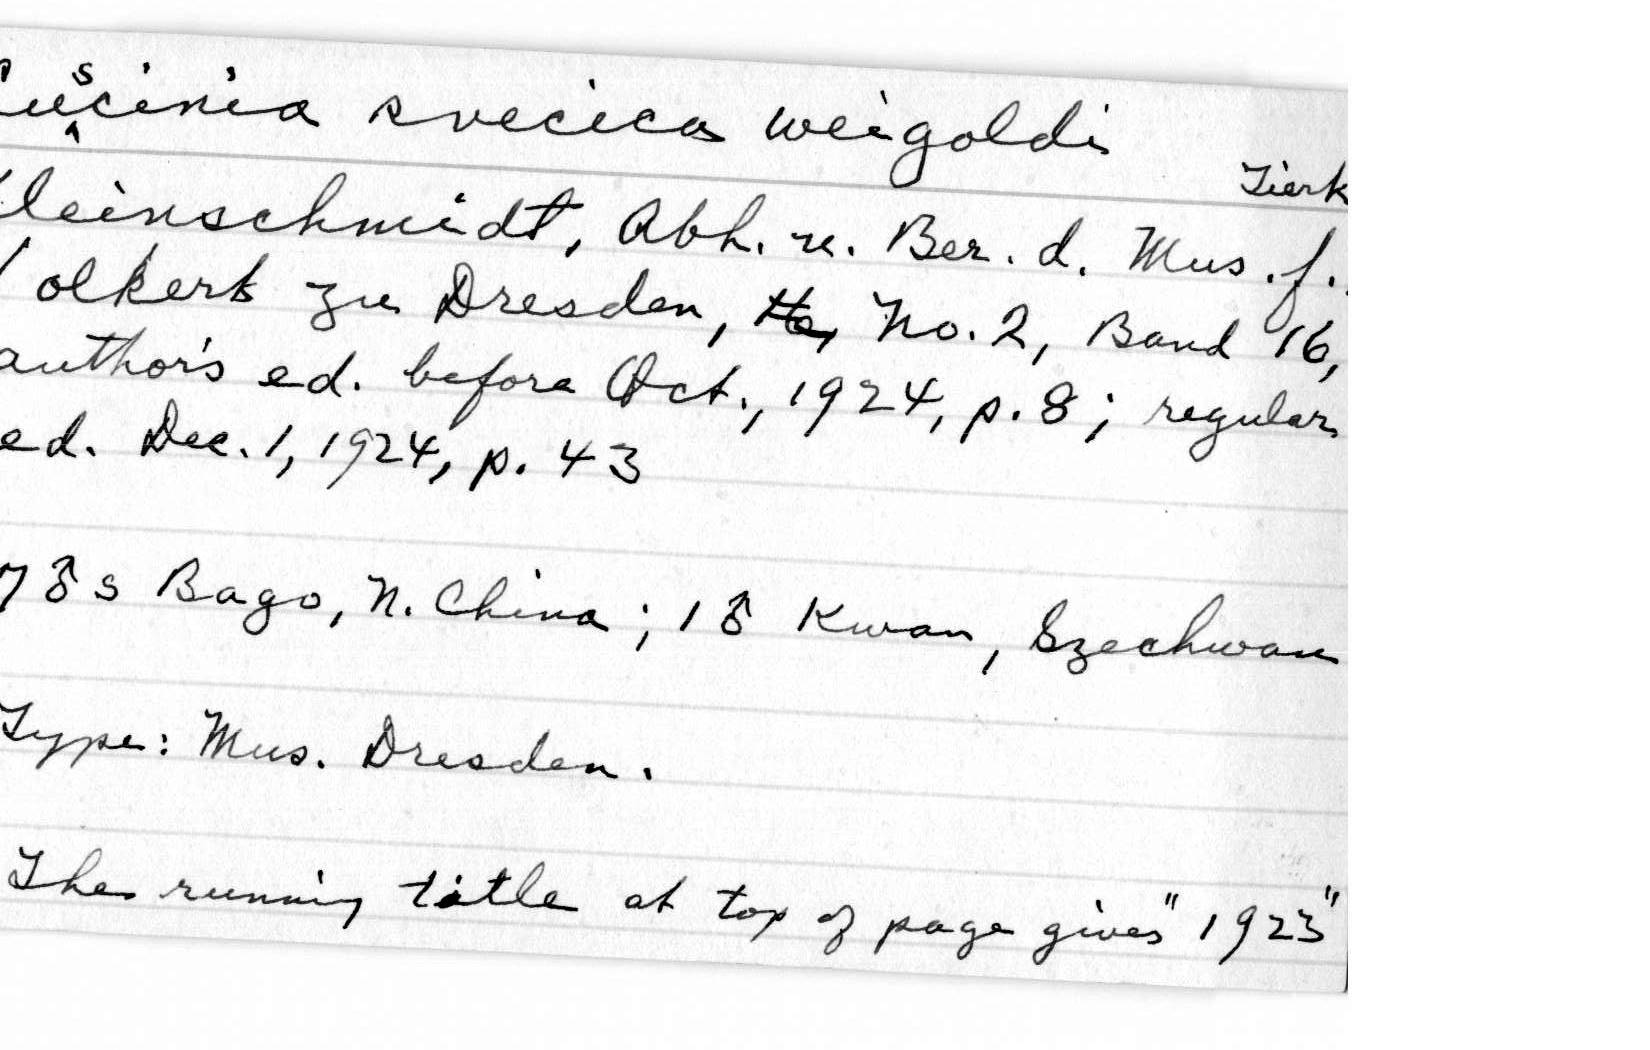 Luscinia svecica weigoldi
Tierk
Kleinschmidt, Abh. u. Ber. d. Mus. f.
Volkerk zu Dresden, No. 2, Band 16,
author's ed. before Oct., 1924, p. 8; regular
ed. Dec. 1, 1924, p. 43
7 ♂s Bago, N. China; 1 ♂ Kwan, Szechwan
Type: Mus. Dresden.
The running title at top of page gives "1923"